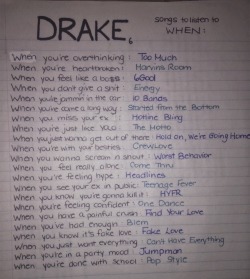 DRAKE songs to listen to
WHEN:
When you're overthinking : Too Much
When you're heartbroken : Marvins Room
When you feel like a boss : 6God
When you don't give a shit : Energy
When you're jammin in the car : 10 Bands
When you've come a long way : Started from the Bottom
When you miss your ex : Hotline Bling
When you're just like YOLO : The Motto
When you just wanna get out of there : Hold on, we're Going Home
When you're with your besties : Crew Love
When you wanna scream n shout : Worst Behavior
When you feel really alone : Come Thru
When you're feeling hype : Headlines
When you see your ex in public : Teenage Fever
When you know you gonna kill it : HYFR
When you're feeling confident : One Dance
When you have a painful crush : Find Your Love
When you've had enough : Blem
When you know it's fake love : Fake Love
When you just want everything : Can't Have Everything
When you're in a party mood : Jumpman
When you're done with school : Pop Style